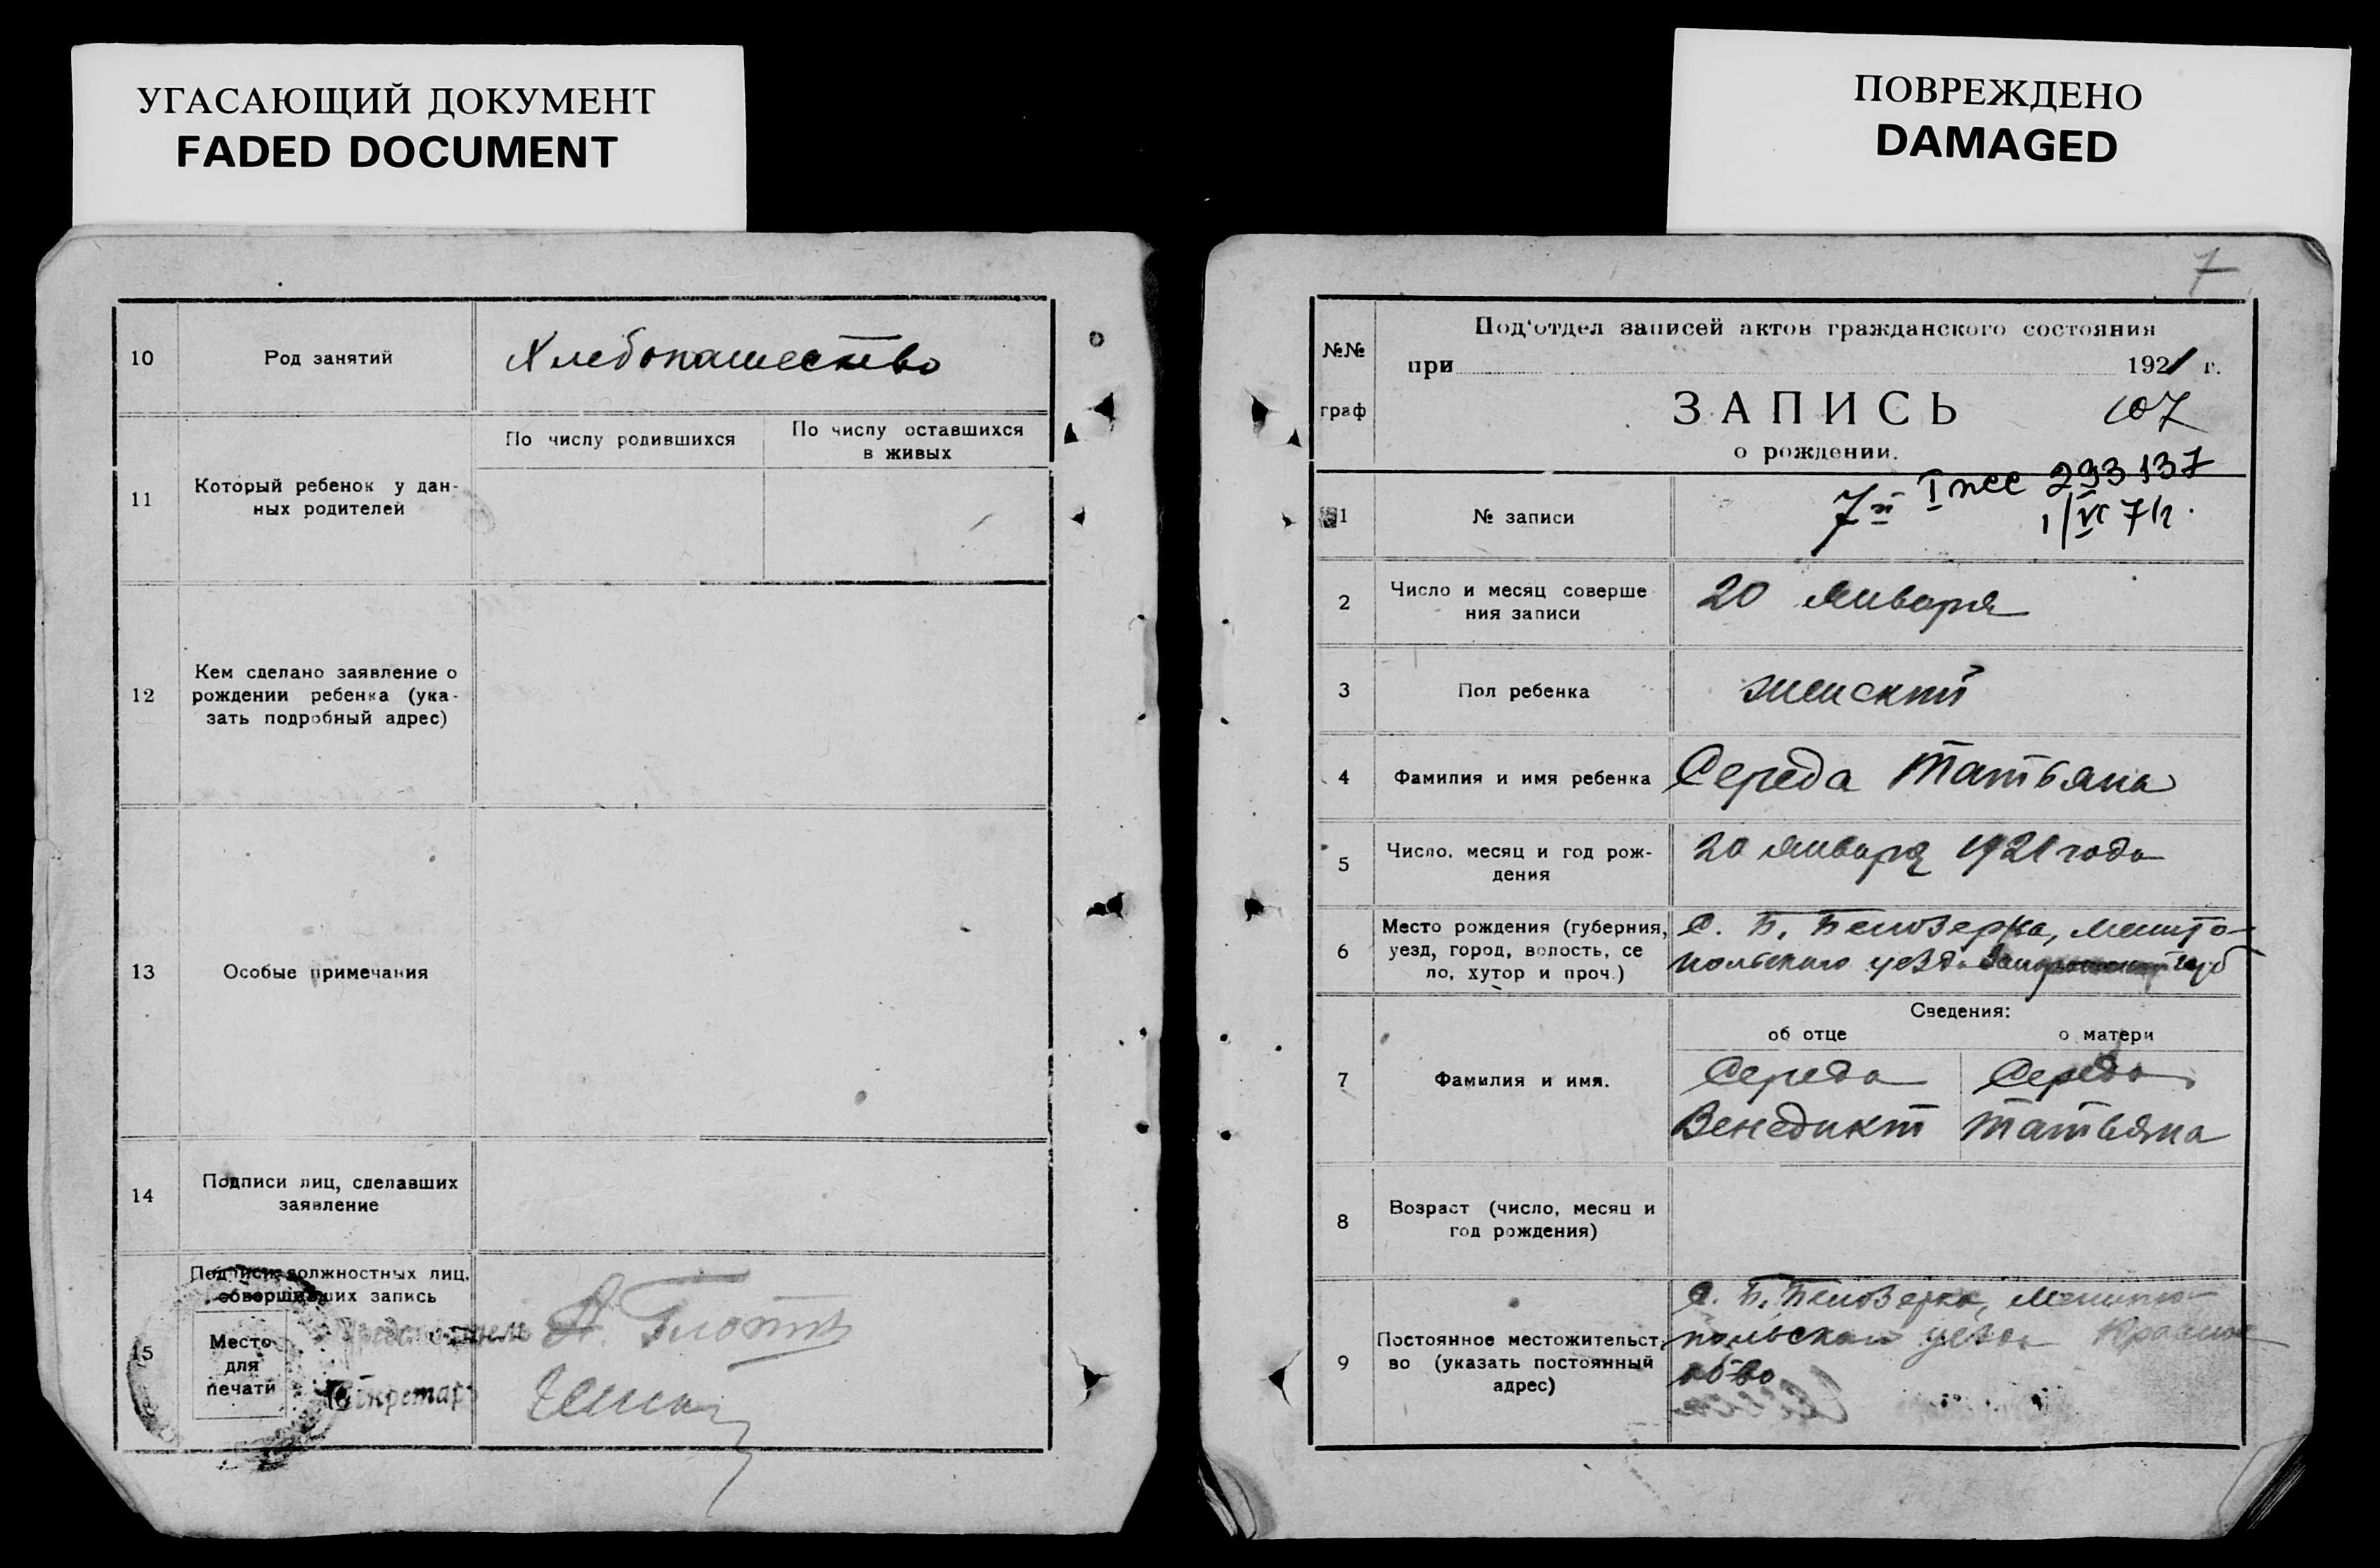 УГАСАЮЩИЙ ДОКУМЕНТ
FADED DOCUMENT
10
Род занятий
Хлебопашество
11
Который ребенок у дан-
ных родителей
По числу родившихся
По числу оставшихся
в живых
12
Кем сделано заявление о
рождении ребенка (ука-
зать подробный адрес)
13
Особые примечания
14
Подписи лиц, сделавших
заявление
15
Подписи должностных лиц,
совершивших запись
Место
для
печати
Председатель
Секретарь
ПОВРЕЖДЕНО
DAMAGED
7
№№
граф
Под'отдел записей актов гражданского состояния
при 1921 г.
ЗАПИСЬ 107
о рождении.
1
№ записи
7й I 293137
1/VI 71г.
2
Число и месяц соверше
ния записи
20 января
3
Пол ребенка
женский
4
Фамилия и имя ребенка
Середа Татьяна
5
Число, месяц и год рож-
дения
20 января 1921 года
6
Место рождения (губерния,
уезд, город, волость, се
ло, хутор и проч.)
С. Б. Белозерка, Мелито-
польского уезда Запорожской губ
Сведения:
об отце
о матери
7
Фамилия и имя.
Середа
Венедикт
Середа
Татьяна
8
Возраст (число, месяц и
год рождения)
9
Постоянное местожительст-
во (указать постоянный
адрес)
С. Б. Белозерка, Мелито-
польского уезда
об-во